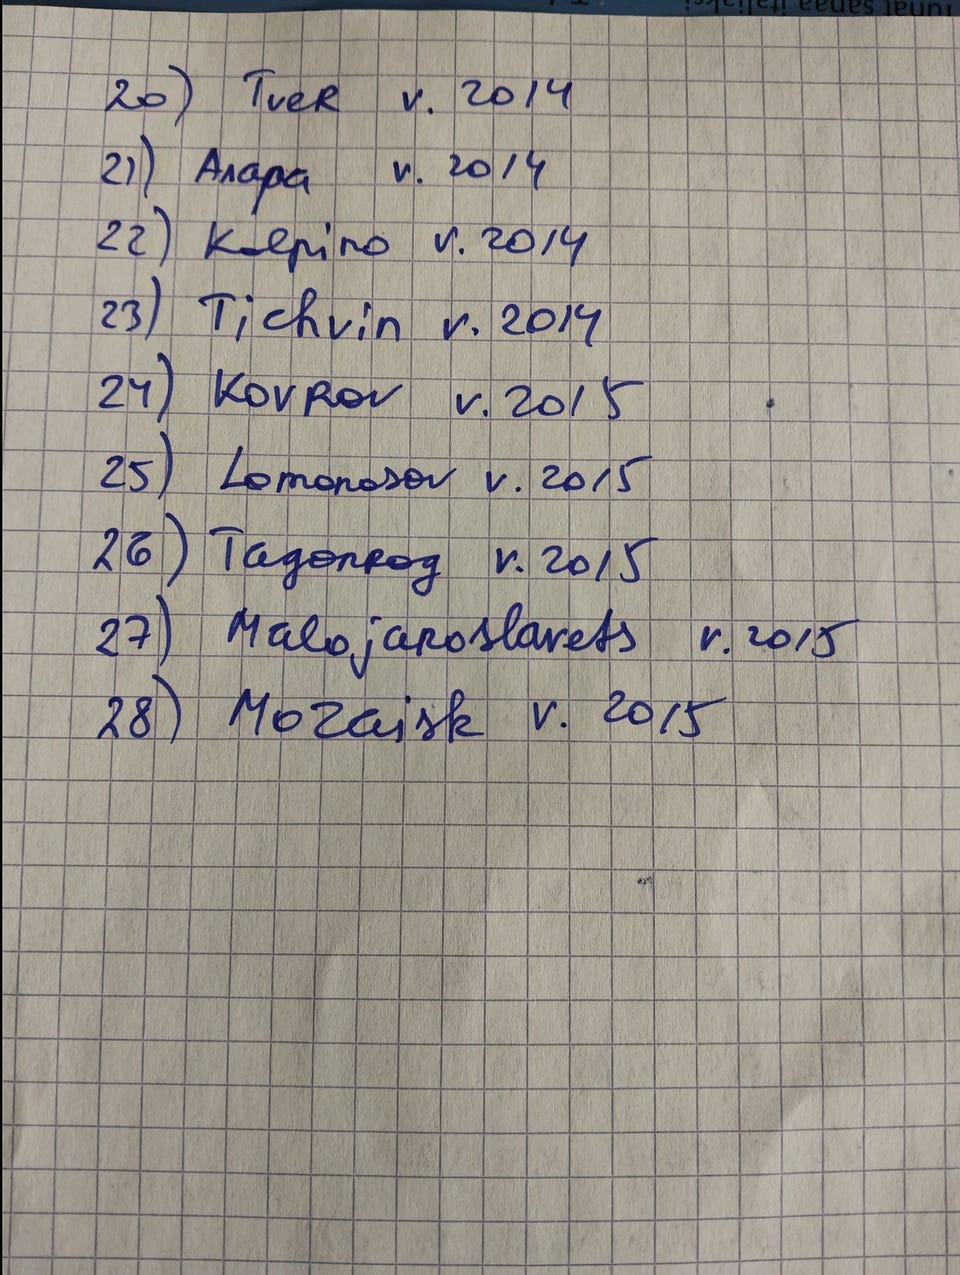 20) Tver v. 2014
21) Anapa v. 2014
22) Kolpino v. 2014
23) Tichvin v. 2014
24) Kovrov v. 2015
25) Lomonosov v. 2015
26) Tagonrog v. 2015
27) Malojaroslavets v. 2015
28) Mozaisk v. 2015